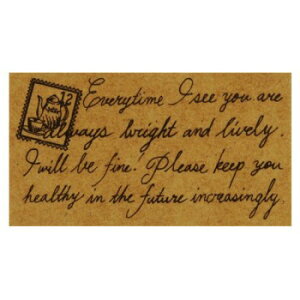 12 Everytime I see you are
always bright and lively.
I will be fine! Please keep you
healthy in the future increasingly.